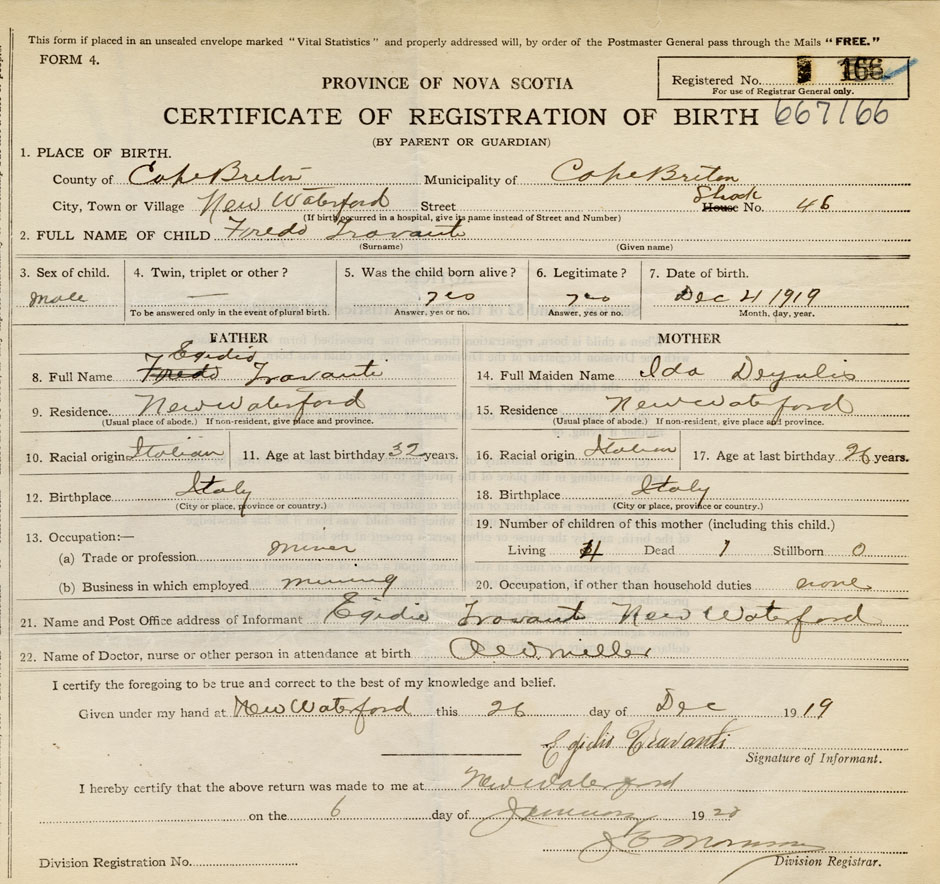 This form if placed in an unsealed envelope marked "Vital Statistics" and properly addressed will, by order of the Postmaster General pass through the Mails "FREE."
FORM 4.
Registered No. 166
For use of Registrar General only.
PROVINCE OF NOVA SCOTIA
CERTIFICATE OF REGISTRATION OF BIRTH 667166
(BY PARENT OR GUARDIAN)
1. PLACE OF BIRTH.
County of Cape Breton Municipality of Cape Breton
City, Town or Village New Waterford Street Shack House No. 46
(If birth occurred in a hospital, give its name instead of Street and Number)
2. FULL NAME OF CHILD Fredo Travanti
(Surname) (Given name)
3. Sex of child. 4. Twin, triplet or other? 5. Was the child born alive? 6. Legitimate? 7. Date of birth.
male — yes yes Dec 4 1919
To be answered only in the event of plural birth. Answer, yes or no. Answer, yes or no. Month, day, year.
FATHER MOTHER
Egidio
8. Full Name Fredo Travanti 14. Full Maiden Name Ida
9. Residence. New Waterford 15. Residence New Waterford
(Usual place of abode.) If non-resident, give place and province. (Usual place of abode.) If non-resident, give place and province.
10. Racial origin Italian 11. Age at last birthday 32 years. 16. Racial origin Italian 17. Age at last birthday 26 years.
12. Birthplace Italy 18. Birthplace Italy
(City or place, province or country.) (City or place, province or country.)
13. Occupation:— 19. Number of children of this mother (including this child.)
(a) Trade or profession miner Living 4 Dead 1 Stillborn 0
(b) Business in which employed mining 20. Occupation, if other than household duties none
21. Name and Post Office address of Informant Egidio Travanti New Waterford
22. Name of Doctor, nurse or other person in attendance at birth Miller
I certify the foregoing to be true and correct to the best of my knowledge and belief.
Given under my hand at New Waterford this 26 day of Dec 1919
Egidio Travanti
Signature of Informant.
I hereby certify that the above return was made to me at New Waterford
on the 6 day of January 1920
Morrison
Division Registration No. Division Registrar.